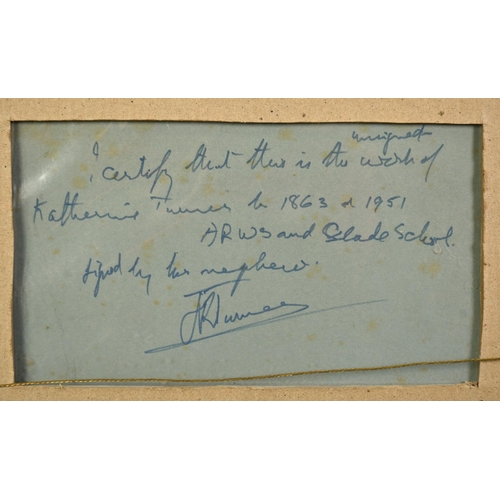 unsigned
I certify that this is the work of
Katherine Turner b 1863 d 1951
ARWS and Slade School.
signed by his nephew.